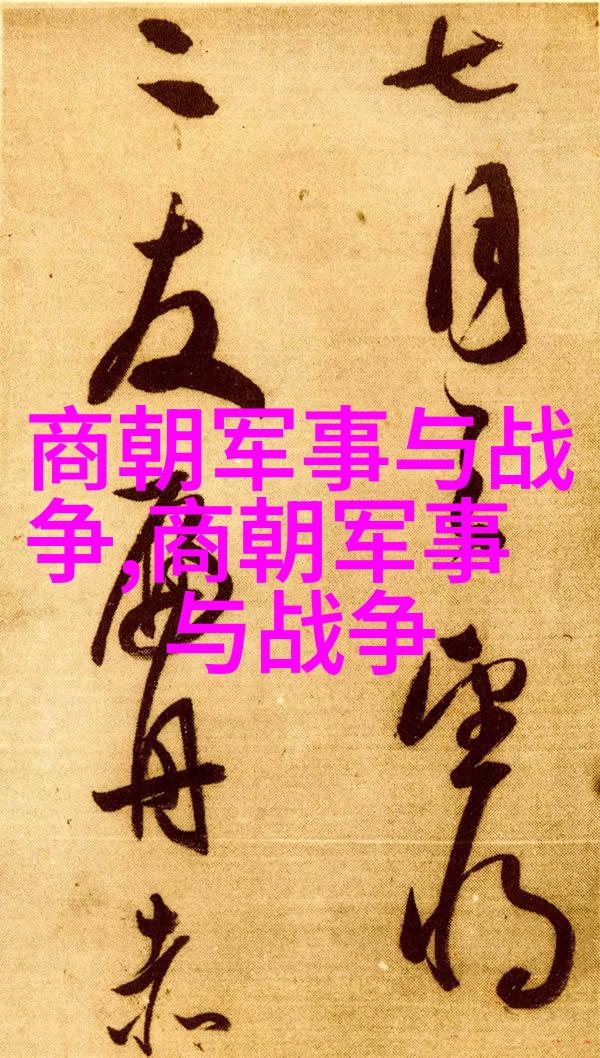 商朝军事与战
争,商朝军事
与战争
七月望
二友舟赤